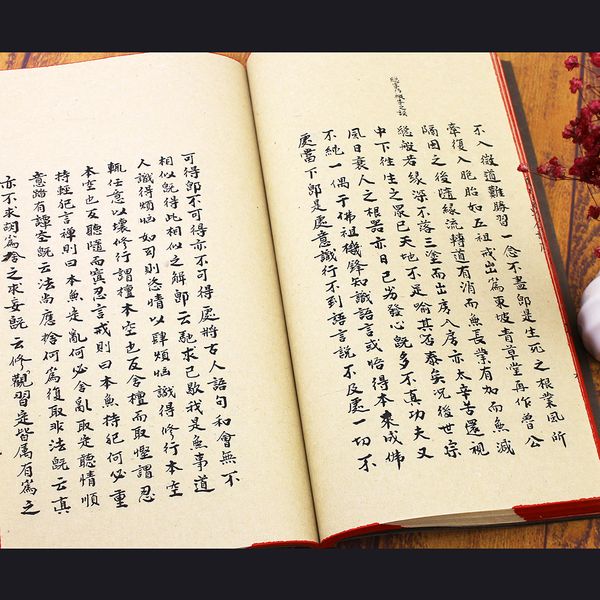 不入微道難勝習一念不盡即是生死之根業風所
牽復入胞胎如五祖戒出為東坡青草堂再作曾公
隔因之後隨緣流轉道有消而無長業有加而無減
縱般若緣深不落三塗而出房入房亦太辛苦還視
中下往生之眾已天地不足喻其否泰矣況後世宗
風日衰人之根器亦日已劣發心既多不真功夫又
不純一偶于佛祖機鋒知識語言或悟得本來成佛
處當下即是處意識行不到語言說不及處一切不
可得即不可得亦不可得處將古人語句和會無不
相似既得此相似之解即云馳求已歇我是無事道
人識得煩惱如司則恣情以肆煩惱識得修行本空
輒任意以壞修行謂檀本空也反舍檀而取慳謂忍
本空也反聽隨而忍言戒則曰本無持犯何必重
持輕犯言禪則曰本無亂何必舍亂取定聽情順
意踏有譚空既云法尚應捨何為復取非法既云真
亦不求胡為舍之求妄既云修觀習定皆屬有為之